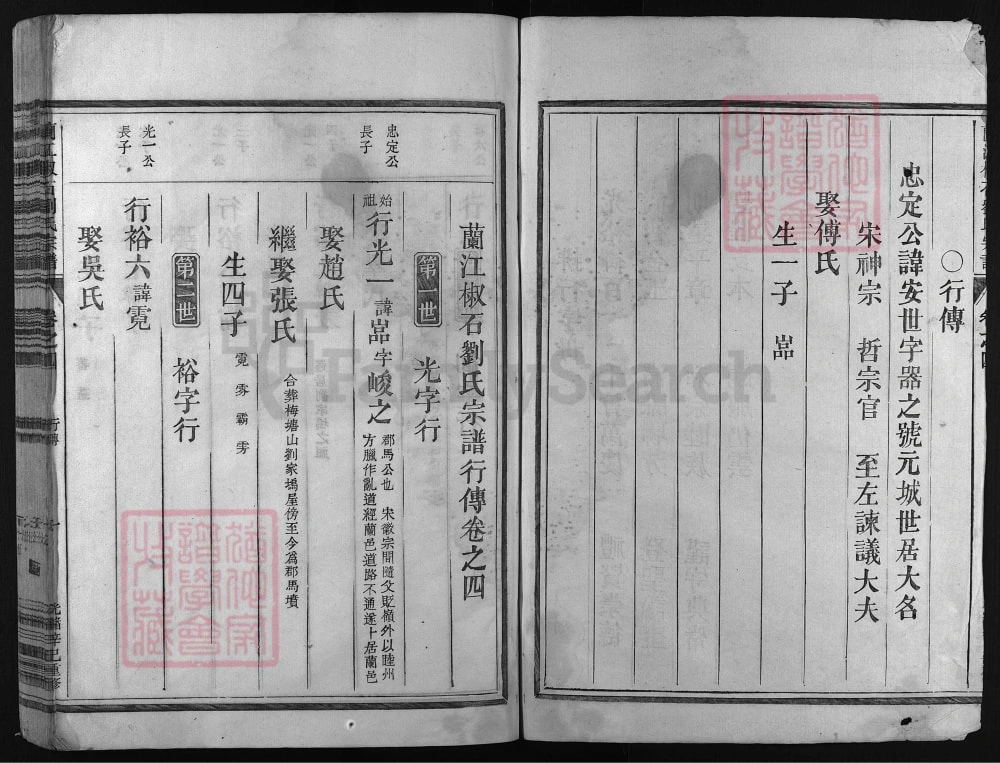 ○行傳
忠定公諱安世字器之號元城世居大名
宋神宗 哲宗官 至左諫議大夫
娶傅氏
生一子 嵓
蘭江椒石劉氏宗譜行傳卷之四
第一世 光字行
忠定公
長子
始祖行光一諱嵓字峻之
郡馬公也 宋徽宗間隨父貶嶺外以睦州
方臘作亂道經蘭邑道路不通遂卜居蘭邑
娶趙氏
繼娶張氏 合葬梅塘山劉家塢屋傍至今爲郡馬墳
生四子 霓 雰 霸 雱
第二世 裕字行
光一公
長子
行裕六諱霓
娶吳氏
行傳
光緒辛巳重修
FamilySearch